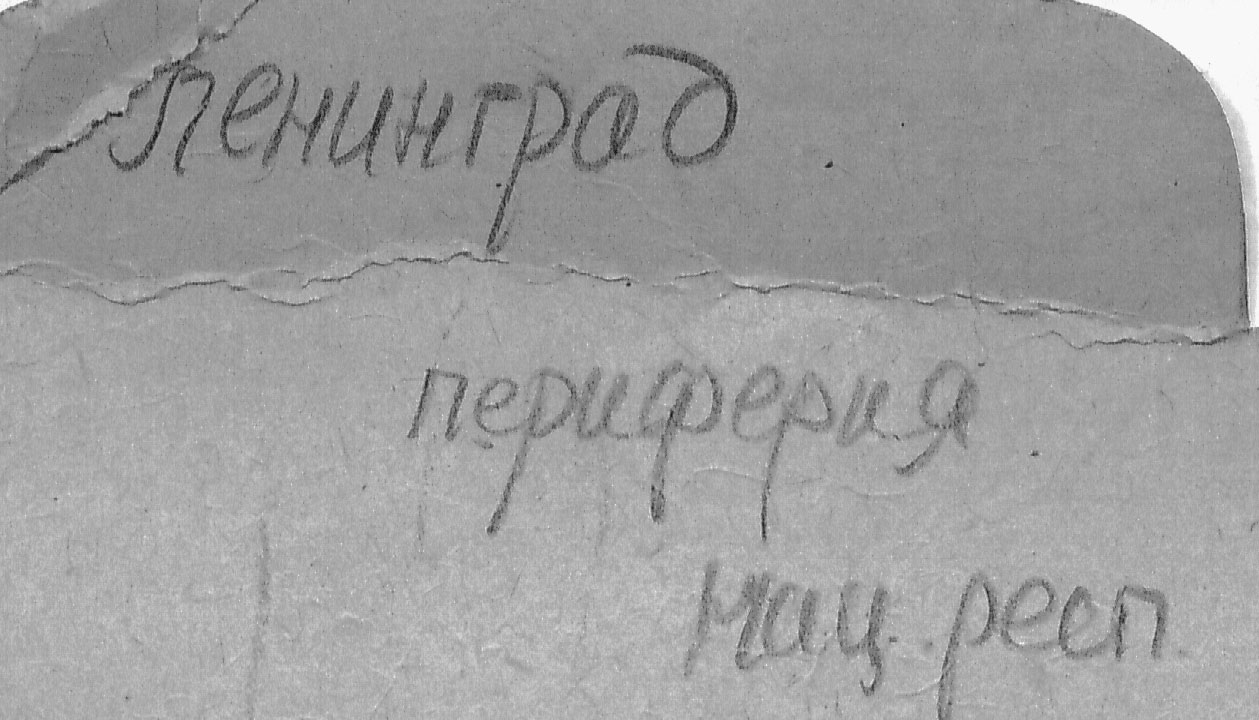 Ленинград
периферия
нац. респ.